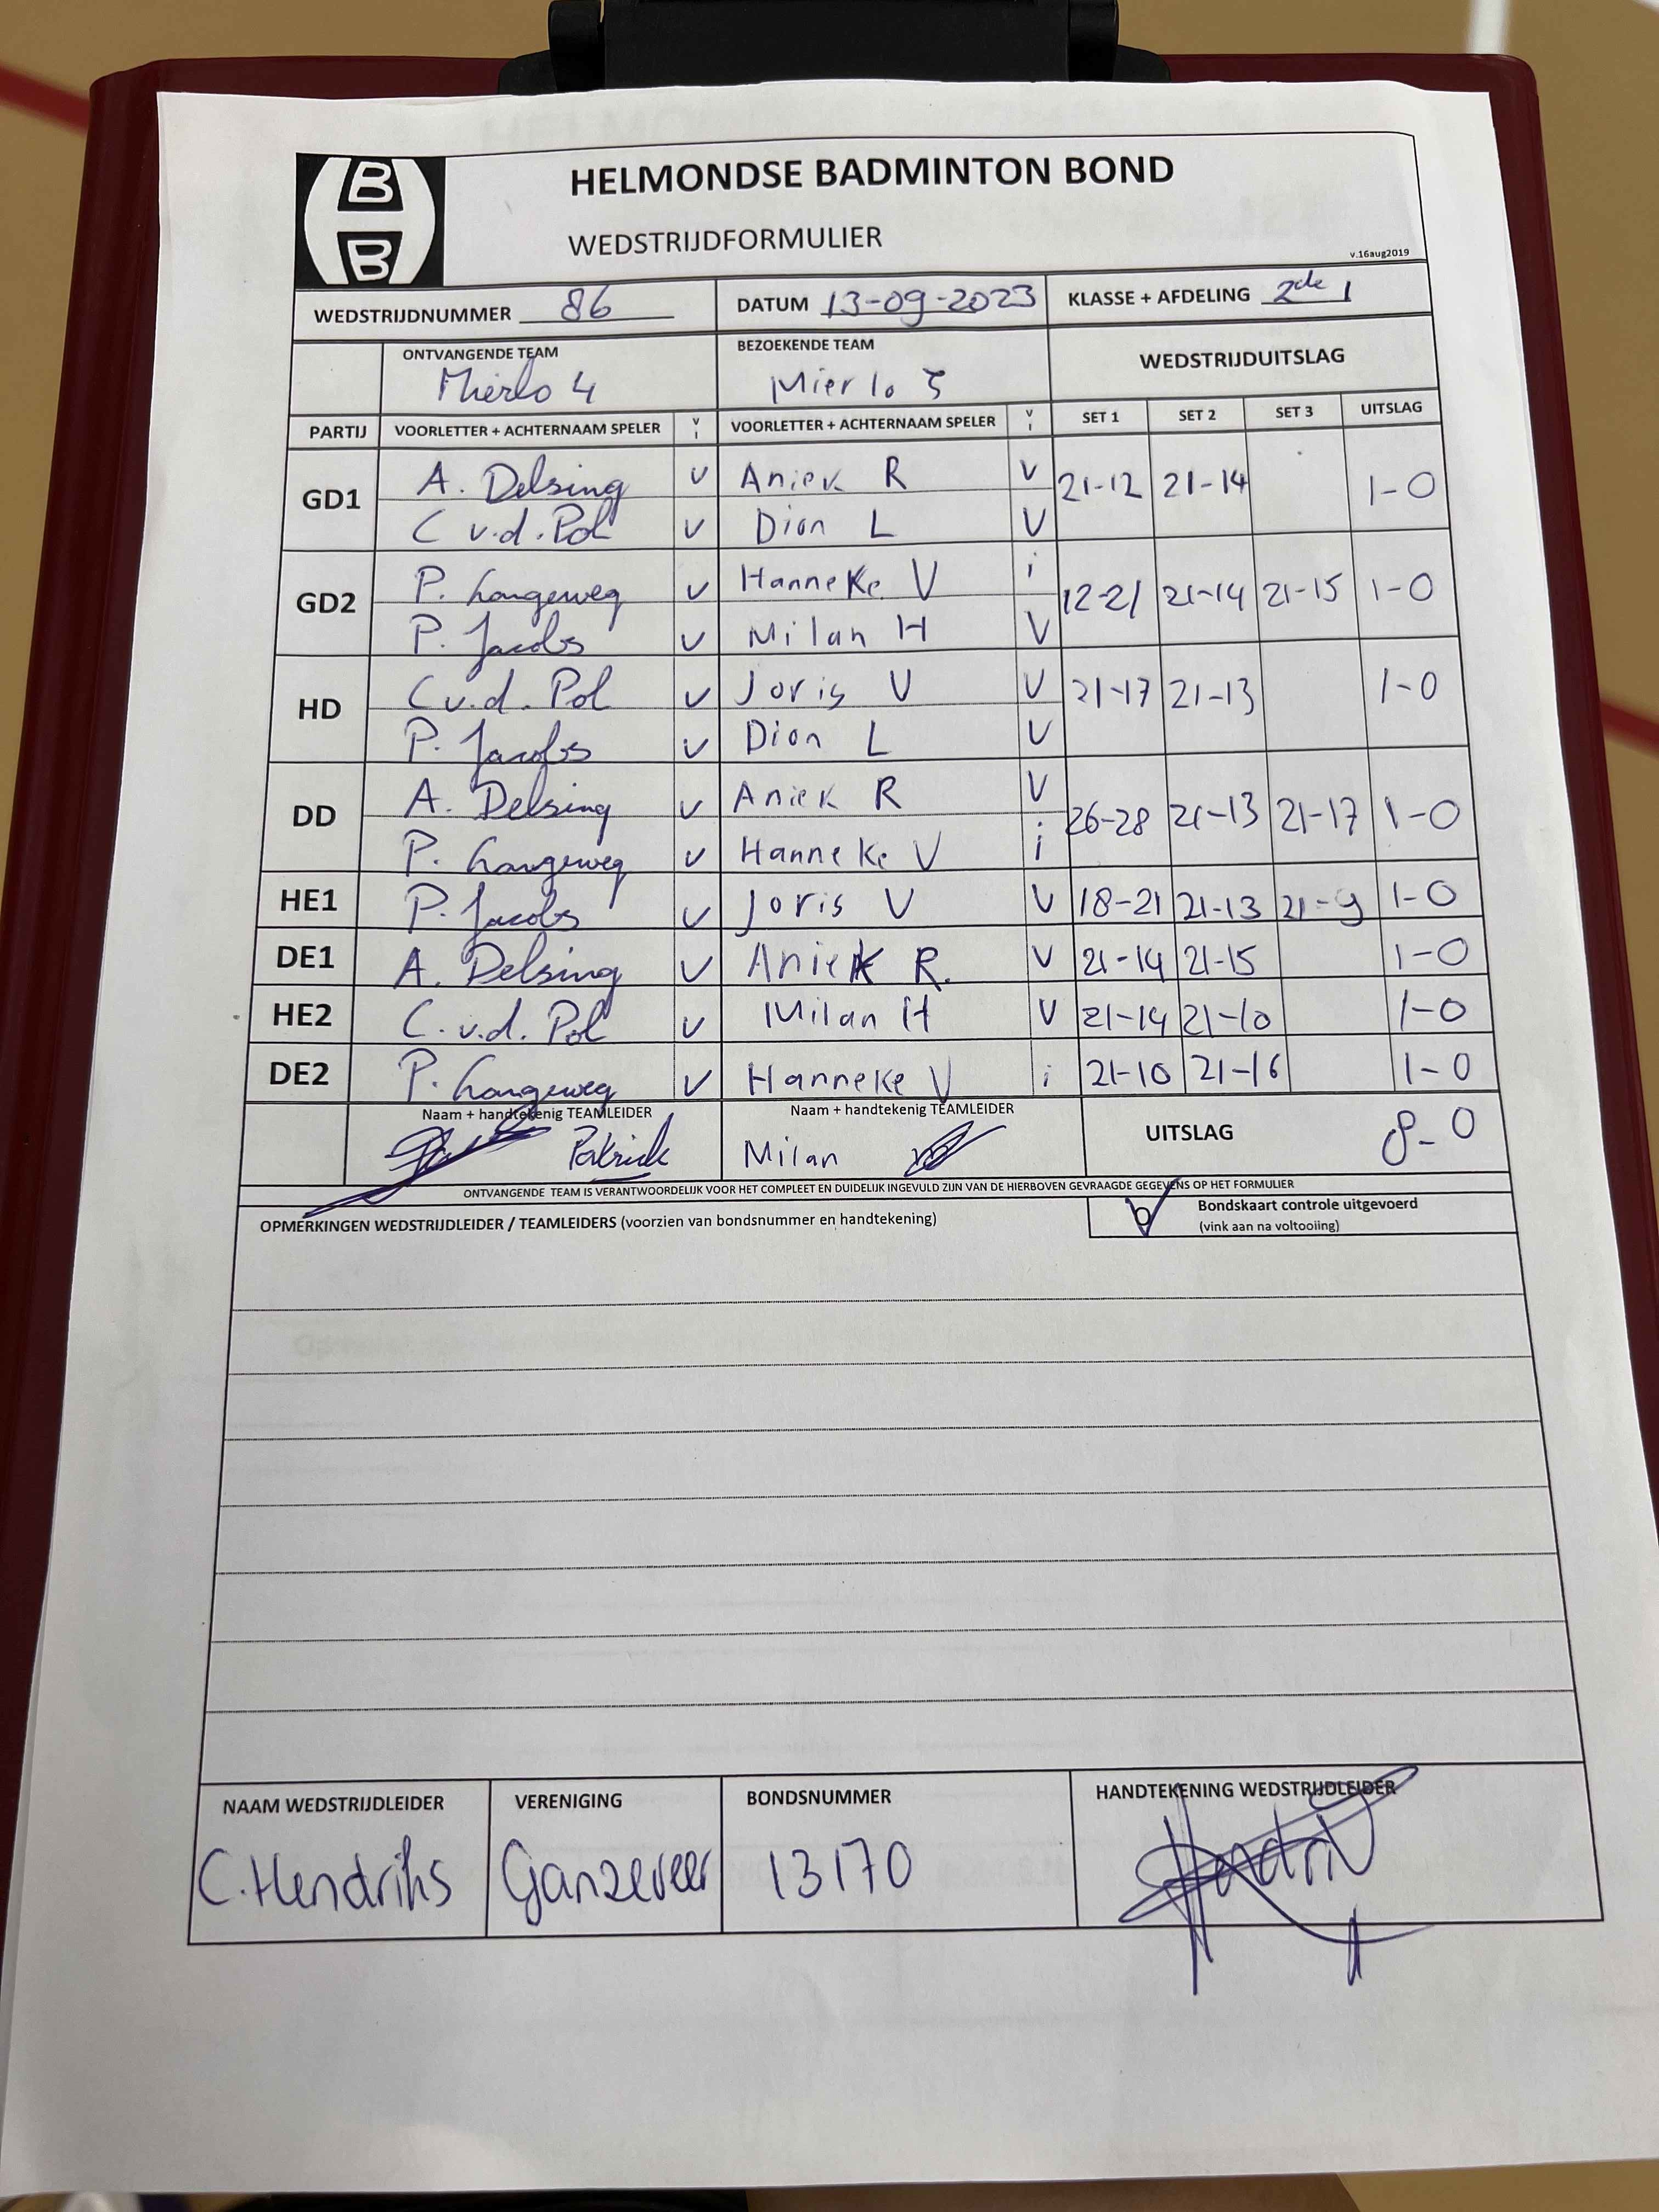 B
B
HELMONDSE BADMINTON BOND
WEDSTRIJDFORMULIER
v.16aug2019
WEDSTRIJDNUMMER 86 DATUM 13-09-2023 KLASSE + AFDELING 2de 1
ONTVANGENDE TEAM BEZOEKENDE TEAM WEDSTRIJDUITSLAG
Mierlo 4 Mierlo 5
PARTIJ VOORLETTER + ACHTERNAAM SPELER V I VOORLETTER + ACHTERNAAM SPELER V I SET 1 SET 2 SET 3 UITSLAG
GD1 A. Delsing v Aniek R V 21-12 21-14 1-0
C v.d. Pol v Dion L V
GD2 P. Langeweg v Hanneke V i 12-21 21-14 21-15 1-0
P. Jacobs v Milan H V
HD C v.d. Pol v Joris V V 21-17 21-13 1-0
P. Jacobs v Dion L V
DD A. Delsing v Aniek R V 26-28 21-13 21-17 1-0
P. Langeweg v Hanneke V i
HE1 P. Jacobs v Joris V V 18-21 21-13 21-9 1-0
DE1 A. Delsing v Aniek R. V 21-14 21-15 1-0
HE2 C. v.d. Pol v Milan H V 21-14 21-10 1-0
DE2 P. Langeweg v Hanneke V i 21-10 21-16 1-0
Naam + handtekenig TEAMLEIDER Naam + handtekenig TEAMLEIDER UITSLAG 8-0
Patrick Milan
ONTVANGENDE TEAM IS VERANTWOORDELIJK VOOR HET COMPLEET EN DUIDELIJK INGEVULD ZIJN VAN DE HIERBOVEN GEVRAAGDE GEGEVENS OP HET FORMULIER
OPMERKINGEN WEDSTRIJDLEIDER / TEAMLEIDERS (voorzien van bondsnummer en handtekening) Bondskaart controle uitgevoerd
(vink aan na voltooiing)
NAAM WEDSTRIJDLEIDER VERENIGING BONDSNUMMER HANDTEKENING WEDSTRIJDLEIDER
C.Hendriks Ganzeveer 13170